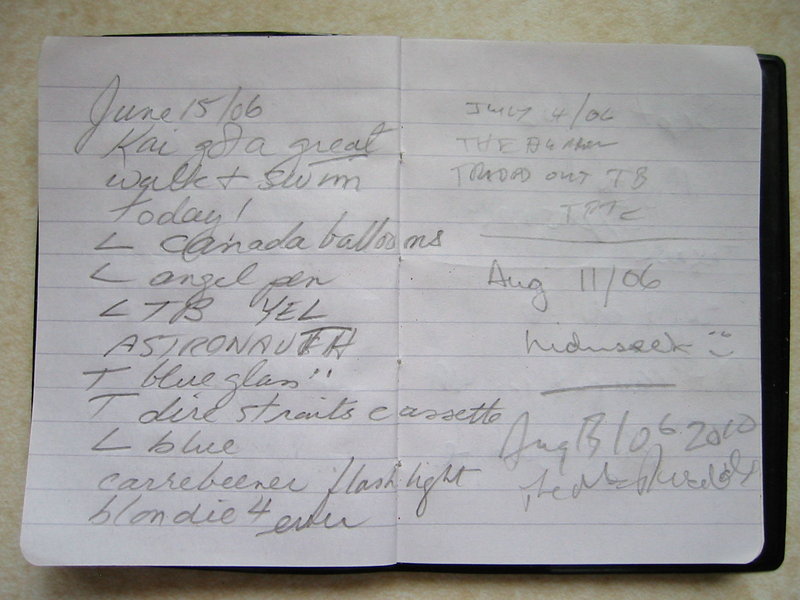 June 15/06
Kai got a great
walk + swim
today!
L Canada balloons
L angel pen
L TB YEL
ASTRONAUT
T blue glass
T dire straits cassette
L blue
carrebeener flashlight
blondie 4 ever
JULY 4/06
THE
TRADED OUT TB
TFTC
Aug 11/06
hidnseek
Aug 13/06 2010
The